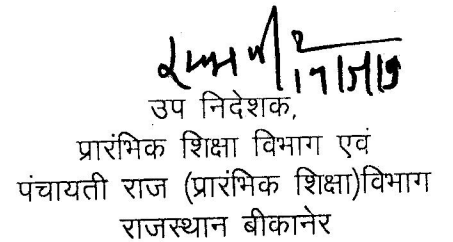 उप निदेशक,
प्रारंभिक शिक्षा विभाग एवं
पंचायती राज (प्रारंभिक शिक्षा)विभाग
राजस्थान बीकानेर